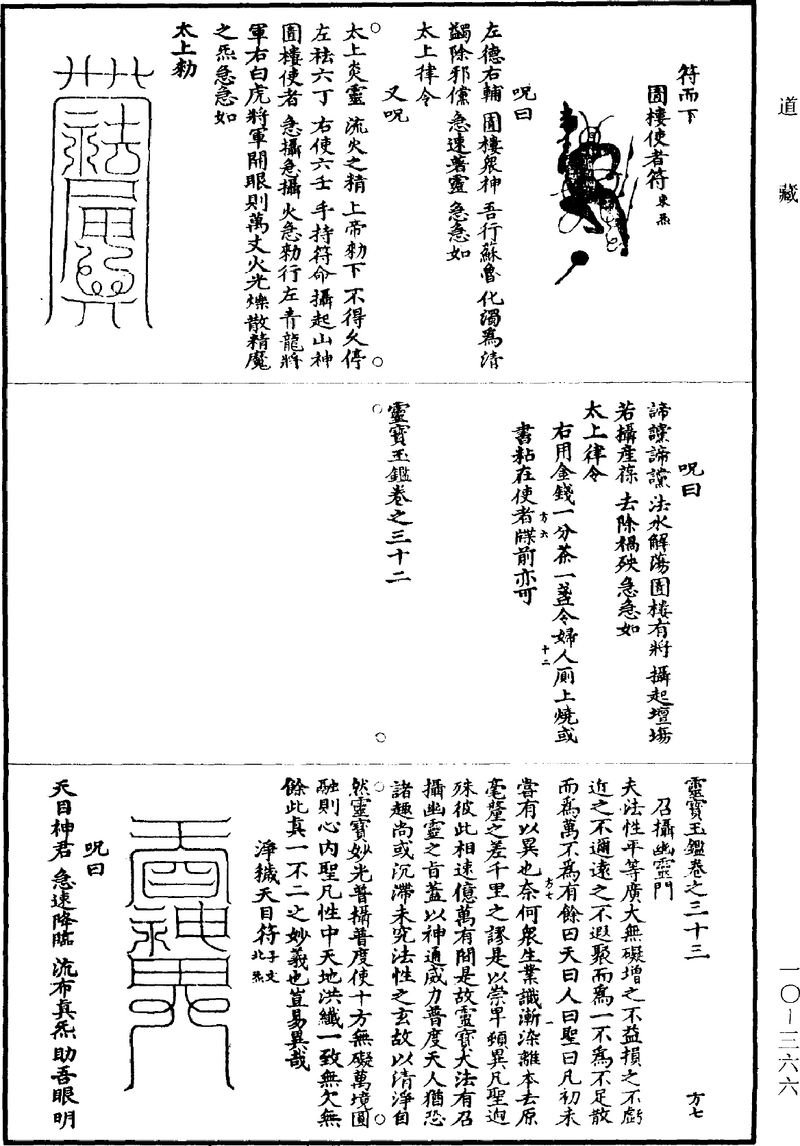 道藏
符而下
圊樓使者符 東炁
呪曰
左德右輔 圊樓衆神 吾行蘇魯 化濁爲清
蠲除邪儻 急速著靈 急急如
太上律令
又呪
太上炎靈 流火之精 上帝勑下 不得久停
左祛六丁 右使六壬 手持符命 攝起山神
圊樓使者 急攝急攝 火急勑行 左青龍將
軍右白虎將軍開眼則萬丈火光爍散精魔
之炁急急如
太上勑
呪曰
諦讜諦讜 法水解蕩 圊樓有將 攝起壇場
若攝產褓 去除禍殃 急急如
太上律令
右用金錢一分茶一盞令婦人厠上燒或
書粘在使者牒前亦可
方六
十二
靈寶玉鑑卷之三十二
靈寶玉鑑卷之三十三
方七
召攝幽靈門
夫法性平等廣大無礙增之不益損之不虧
近之不邇遠之不遐聚而爲一不爲不足散
而爲萬不爲有餘曰天曰人曰聖曰凡初未
嘗有以異也奈何衆生業識漸染離本去原
方七
一
毫釐之差千里之謬是以崇卑頓異凡聖迥
殊彼此相速億萬有間是故靈寶大法有召
攝幽靈之旨蓋以神通威力普度天人猶恐
諸趣尚或沉滯未究法性之玄故以清淨自
然靈寶妙光普攝普度使十方無礙萬境圓
融則心內聖凡性中天地洪纖一致無欠無
餘此真一不二之妙義也豈易異哉
淨穢天目符 子文 北炁
呪曰
天目神君 急速降臨 流布真炁 助吾眼明
一〇—三六六